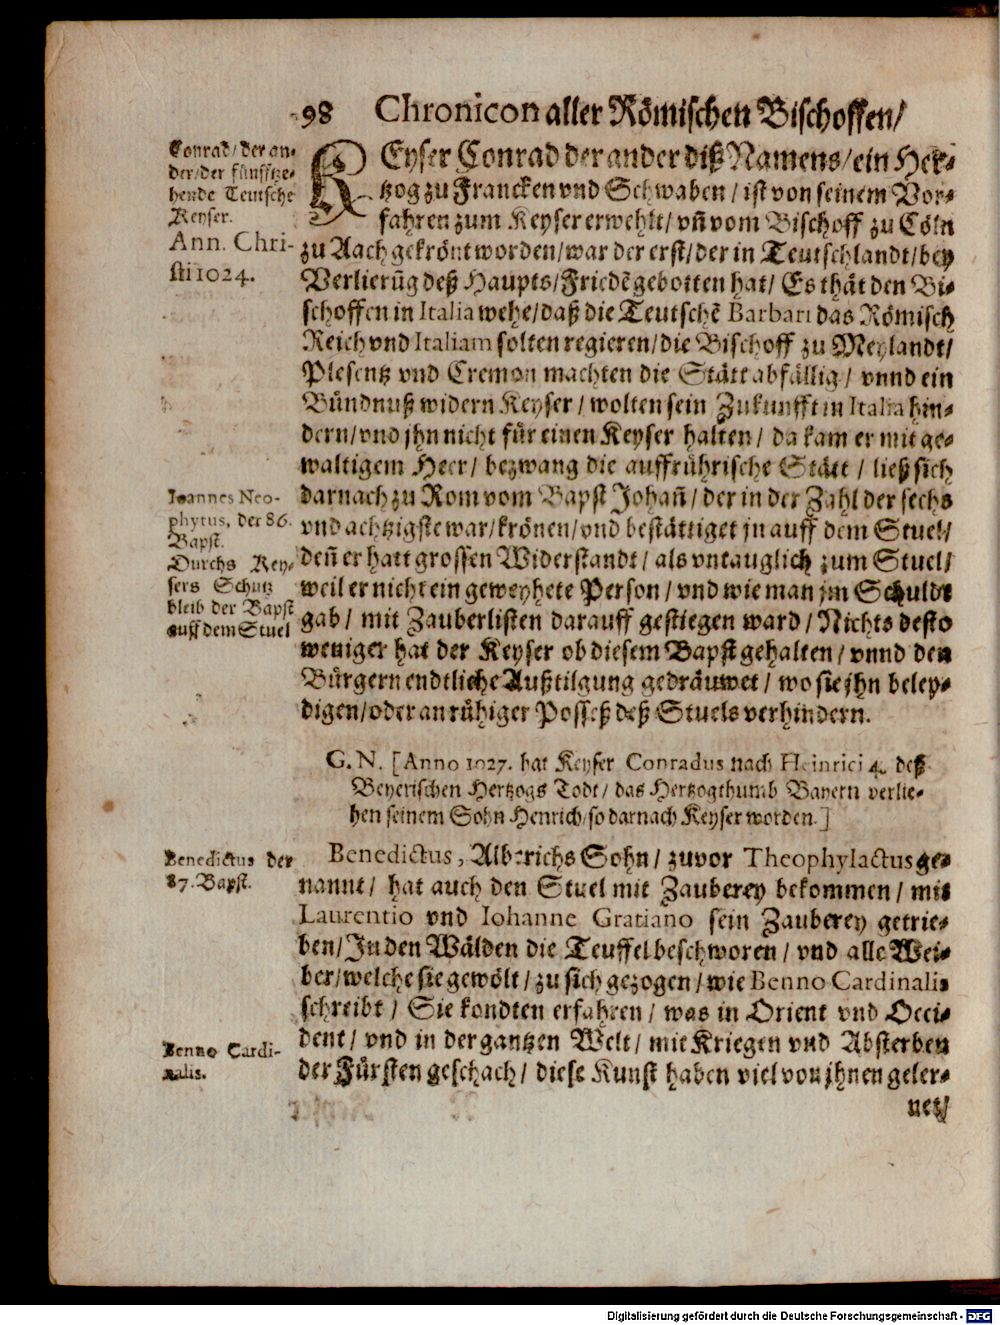 98 Chronicon aller Römischen Bischoffen/
Conrad/ der an-
der/ der fünfftze-
hende Teutsche
Keyser.
Ann. Chri-
sti 1024.
KEyser Conrad der ander diß Namens/ ein Her-
tzog zu Francken vnd Schwaben/ ist von seinem Vor-
fahren zum Keyser erwehlt/ vñ vom Bischoff zu Cöln
zu Aach gekrönt worden/ war der erst/ der in Teutschlandt/ bey
Verlierũg deß Haupts/ Friedẽ gebotten hat/ Es thät den Bi-
schoffen in Italia wehe/ daß die Teutschẽ Barbari das Römisch
Reich vnd Italiam solten regieren/ die Bischoff zu Meylandt/
Plesentz vnd Cremon machten die Stätt abfällig/ vnnd ein
Bündnuß widern Keyser/ wolten sein Zukunfft in Italia hin-
dern/ vnd jhn nicht für einen Keyser halten/ da kam er mit ge-
waltigem Heer/ bezwang die auffrührische Stätt/ ließ sich
darnach zu Rom vom Bapst Johañ/ der in der Zahl der sechs
vnd achtzigste war/ krönen/ vnd bestättiget jn auff dem Stuel/
deñ er hatt grossen Widerstandt/ als vntauglich zum Stuel/
weil er nicht ein geweyhete Person/ vnd wie man jm Schuldt
gab/ mit Zauberlisten darauff gestiegen ward/ Nichts desto
weniger hat der Keyser ob diesem Bapst gehalten/ vnnd den
Bürgern endtliche Außtilgung gedräuwet/ wo sie jhn beley-
digen/ oder an rühiger Posseß deß Stuels verhindern.
Ioannes Neo-
phytus, der 86.
Bapst.
Durchs Key-
sers Schutz
bleib der Bapst
auff dem Stuel
G. N. [Anno 1027. hat Keyser Conradus nach Heinrici 4. deß
Beyerischen Hertzogs Todt/ das Hertzogthumb Bayern verlie-
hen seinem Sohn Henrich/ so darnach Keyser worden.]
Benedictus der
87. Bapst.
Benedictus, Alberichs Sohn/ zuvor Theophylactus ge-
nannt/ hat auch den Stuel mit Zauberey bekommen/ mit
Laurentio vnd Iohanne Gratiano sein Zauberey getrie-
ben/ In den Wälden die Teuffel beschworen/ vnd alle Wei-
ber/ welche sie gewölt/ zu sich gezogen/ wie Benno Cardinalis
schreibt/ Sie kondten erfahren/ was in Orient vnd Occi-
dent/ vnd in der gantzen Welt/ mit Kriegen vnd Absterben
der Fürsten geschach/ diese Kunst haben viel von jhnen geler-
Benno Cardi-
nalis.
net/
Digitalisierung gefördert durch die Deutsche Forschungsgemeinschaft - DFG